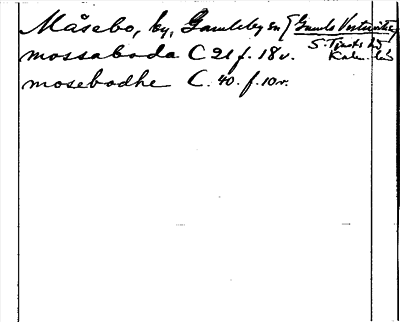 Måsebo, by, Gamleby sn (Gamla Västervik,
S. Tjusts hd
Kalm. län
mossaboda C 21 f. 18v.
mosebodhe C. 40. f. 10v.